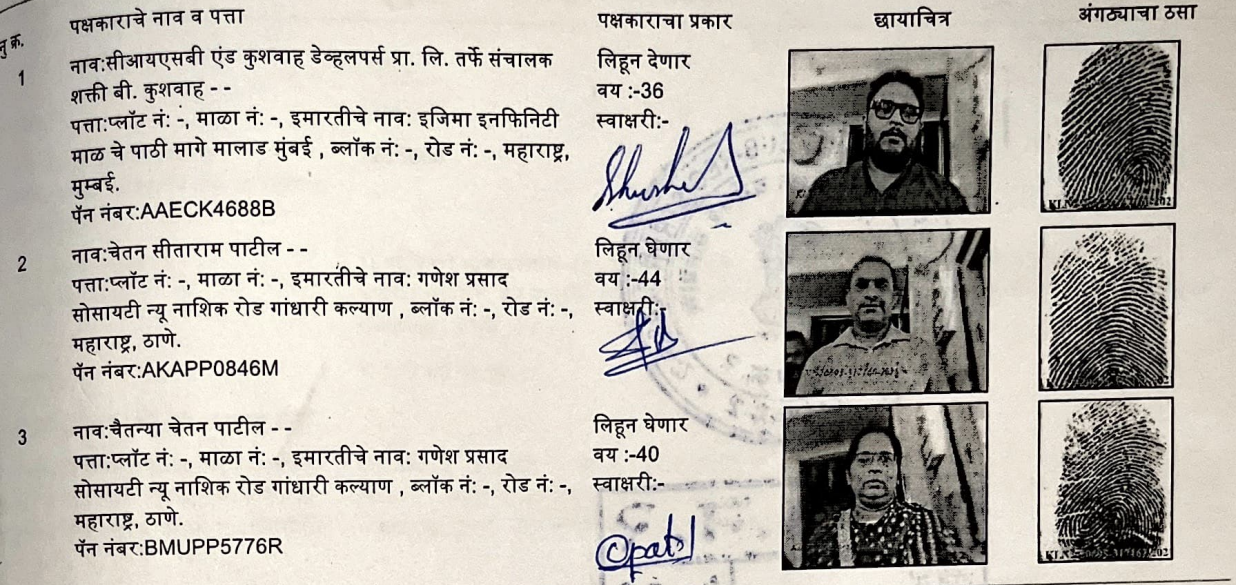 पक्षकाराचे नाव व पत्ता पक्षकाराचा प्रकार छायाचित्र अंगठ्याचा ठसा
क्र.
1
नाव:सीआयएसबी एंड कुशवाह डेव्हलपर्स प्रा. लि. तर्फे संचालक
शक्ती बी. कुशवाह - -
पत्ता:प्लॉट नं: -, माळा नं: -, इमारतीचे नाव: इजिमा इनफिनिटी
माळ चे पाठी मागे मालाड मुंबई , ब्लॉक नं: -, रोड नं: -, महाराष्ट्र,
मुम्बई.
पॅन नंबर:AAECK4688B
लिहून देणार
वय :-36
स्वाक्षरी:-
2
नाव:चेतन सीताराम पाटील - -
पत्ता:प्लॉट नं: -, माळा नं: -, इमारतीचे नाव: गणेश प्रसाद
सोसायटी न्यू नाशिक रोड गांधारी कल्याण , ब्लॉक नं: -, रोड नं: -,
महाराष्ट्र, ठाणे.
पॅन नंबर:AKAPP0846M
लिहून घेणार
वय :-44
स्वाक्षरी:-
3
नाव:चैतन्या चेतन पाटील - -
पत्ता:प्लॉट नं: -, माळा नं: -, इमारतीचे नाव: गणेश प्रसाद
सोसायटी न्यू नाशिक रोड गांधारी कल्याण , ब्लॉक नं: -, रोड नं: -,
महाराष्ट्र, ठाणे.
पॅन नंबर:BMUPP5776R
लिहून घेणार
वय :-40
स्वाक्षरी:-